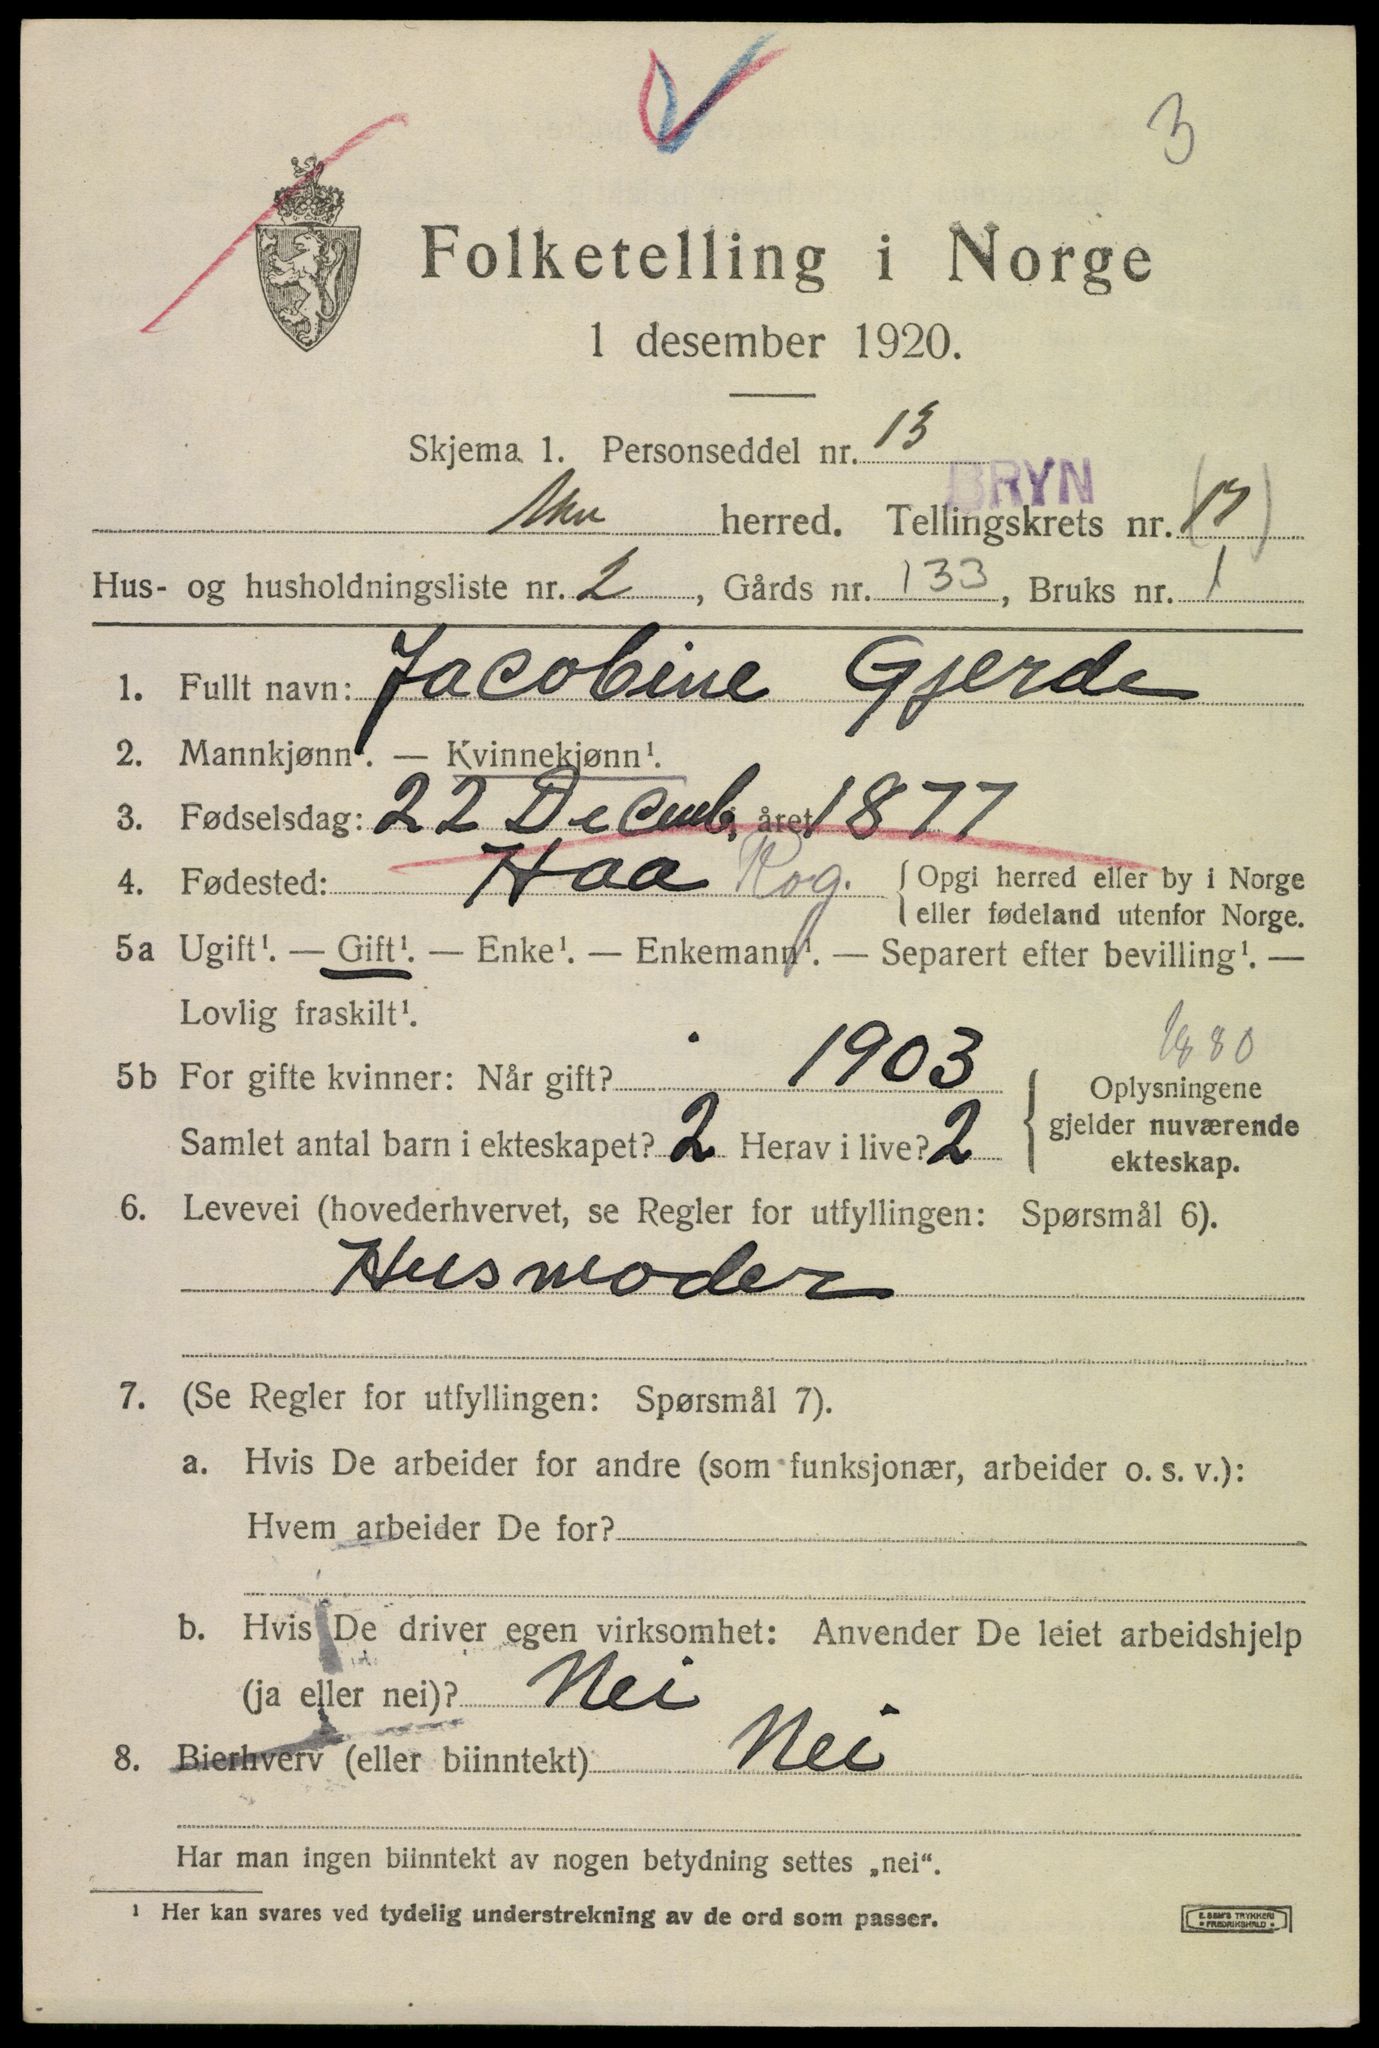 3
Folketelling i Norge
1 desember 1920.
Skjema 1. Personseddel nr. 13
BRYN
Aker herred. Tellingskrets nr. (17)
Hus- og husholdningsliste nr. 2, Gårds nr. 133, Bruks nr. 1
1. Fullt navn: Jacobine Gjerde
2. Mannkjønn¹. — Kvinnekjønn¹.
3. Fødselsdag: 22 Decemb, året 1877
4. Fødested: Haa Rog. { Opgi herred eller by i Norge
eller fødeland utenfor Norge.
5a Ugift¹. — Gift¹. — Enke¹. — Enkemann¹. — Separert efter bevilling¹. —
Lovlig fraskilt¹.
1880
5b For gifte kvinner: Når gift? 1903 { Oplysningene
gjelder nuværende
Samlet antal barn i ekteskapet? 2 Herav i live? 2
ekteskap.
6. Levevei (hovederhvervet, se Regler for utfyllingen: Spørsmål 6).
Husmoder
7. (Se Regler for utfyllingen: Spørsmål 7).
a. Hvis De arbeider for andre (som funksjonær, arbeider o. s. v.):
Hvem arbeider De for?
b. Hvis De driver egen virksomhet: Anvender De leiet arbeidshjelp
(ja eller nei)? Nei
8. Bierhverv (eller biinntekt) Nei
Har man ingen biinntekt av nogen betydning settes „nei“.
¹ Her kan svares ved tydelig understrekning av de ord som passer.
E. SEM'S TRYKKERI
FREDRIKSHALD